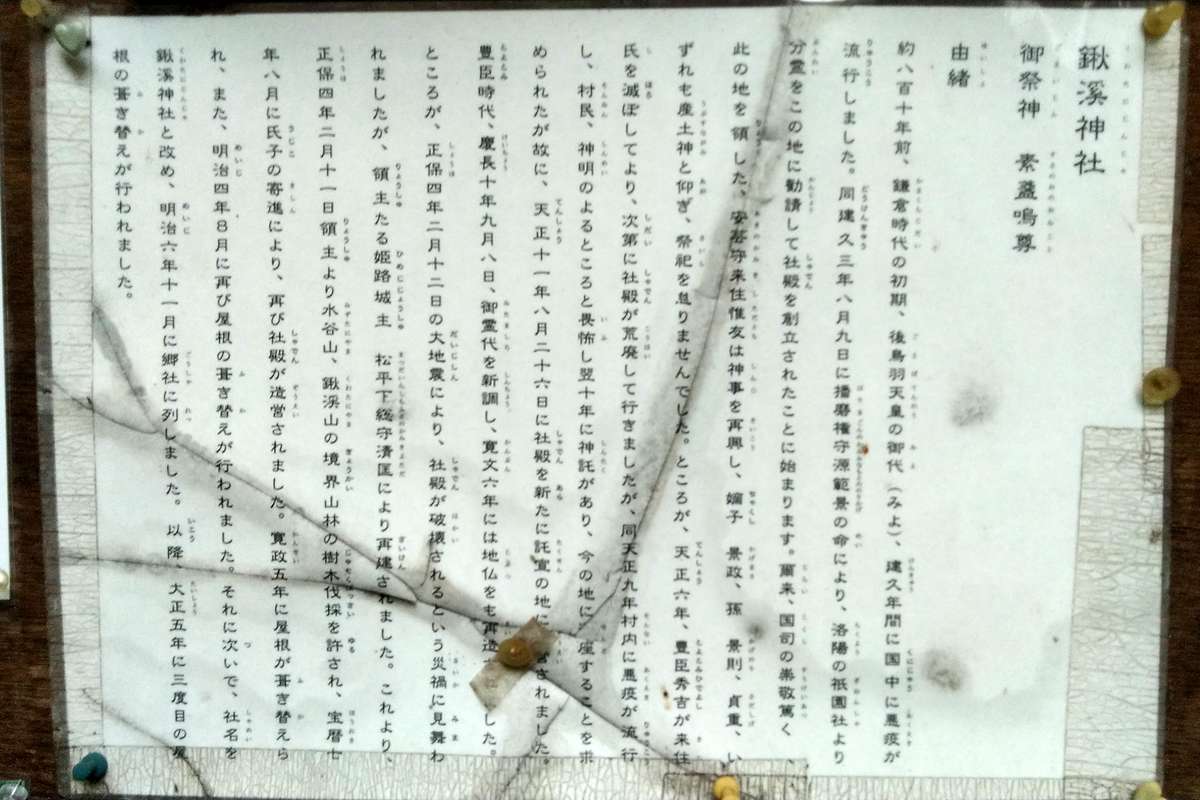 鍬溪神社
御祭神　素盞嗚尊
由緒
約八百十年前、鎌倉時代の初期、後鳥羽天皇の御代（みよ）、建久年間に国中に悪疫が
流行しました。同建久三年八月九日に播磨権守源範景の命により、洛陽の祇園社より
分霊をこの地に勧請して社殿を創立されたことに始まります。爾来、国司の崇敬篤く、
此の地を領した、安芸守来住惟友は神事を再興し、嫡子　景政、孫　景則、貞重、い
ずれも産土神と仰ぎ、祭祀を怠りませんでした。ところが、天正六年、豊臣秀吉が来住
氏を滅ぼしてより、次第に社殿が荒廃して行きましたが、同天正九年村内に悪疫が流行
し、村民、神明のよるところと畏怖し翌十年に神託があり、今の地に座することを求
められたが故に、天正十一年八月二十六日に社殿を新たに託宣の地に営されました。
豊臣時代、慶長十年九月八日、御霊代を新調し、寛文六年には地仏をも再造した。
ところが、正保四年二月十二日の大地震により、社殿が破壊されるという災禍に見舞わ
れましたが、領主たる姫路城主　松平下総守清匡により再建されました。これより、
正保四年二月十一日領主より水谷山、鍬渓山の境界山林の樹木伐採を許され、宝暦七
年八月に氏子の寄進により、再び社殿が造営されました。寛政五年に屋根が葺き替えら
れ、また、明治四年８月に再び屋根の葺き替えが行われました。それに次いで、社名を
鍬溪神社と改め、明治六年十一月に郷社に列しました。以降、大正五年に三度目の屋
根の葺き替えが行われました。